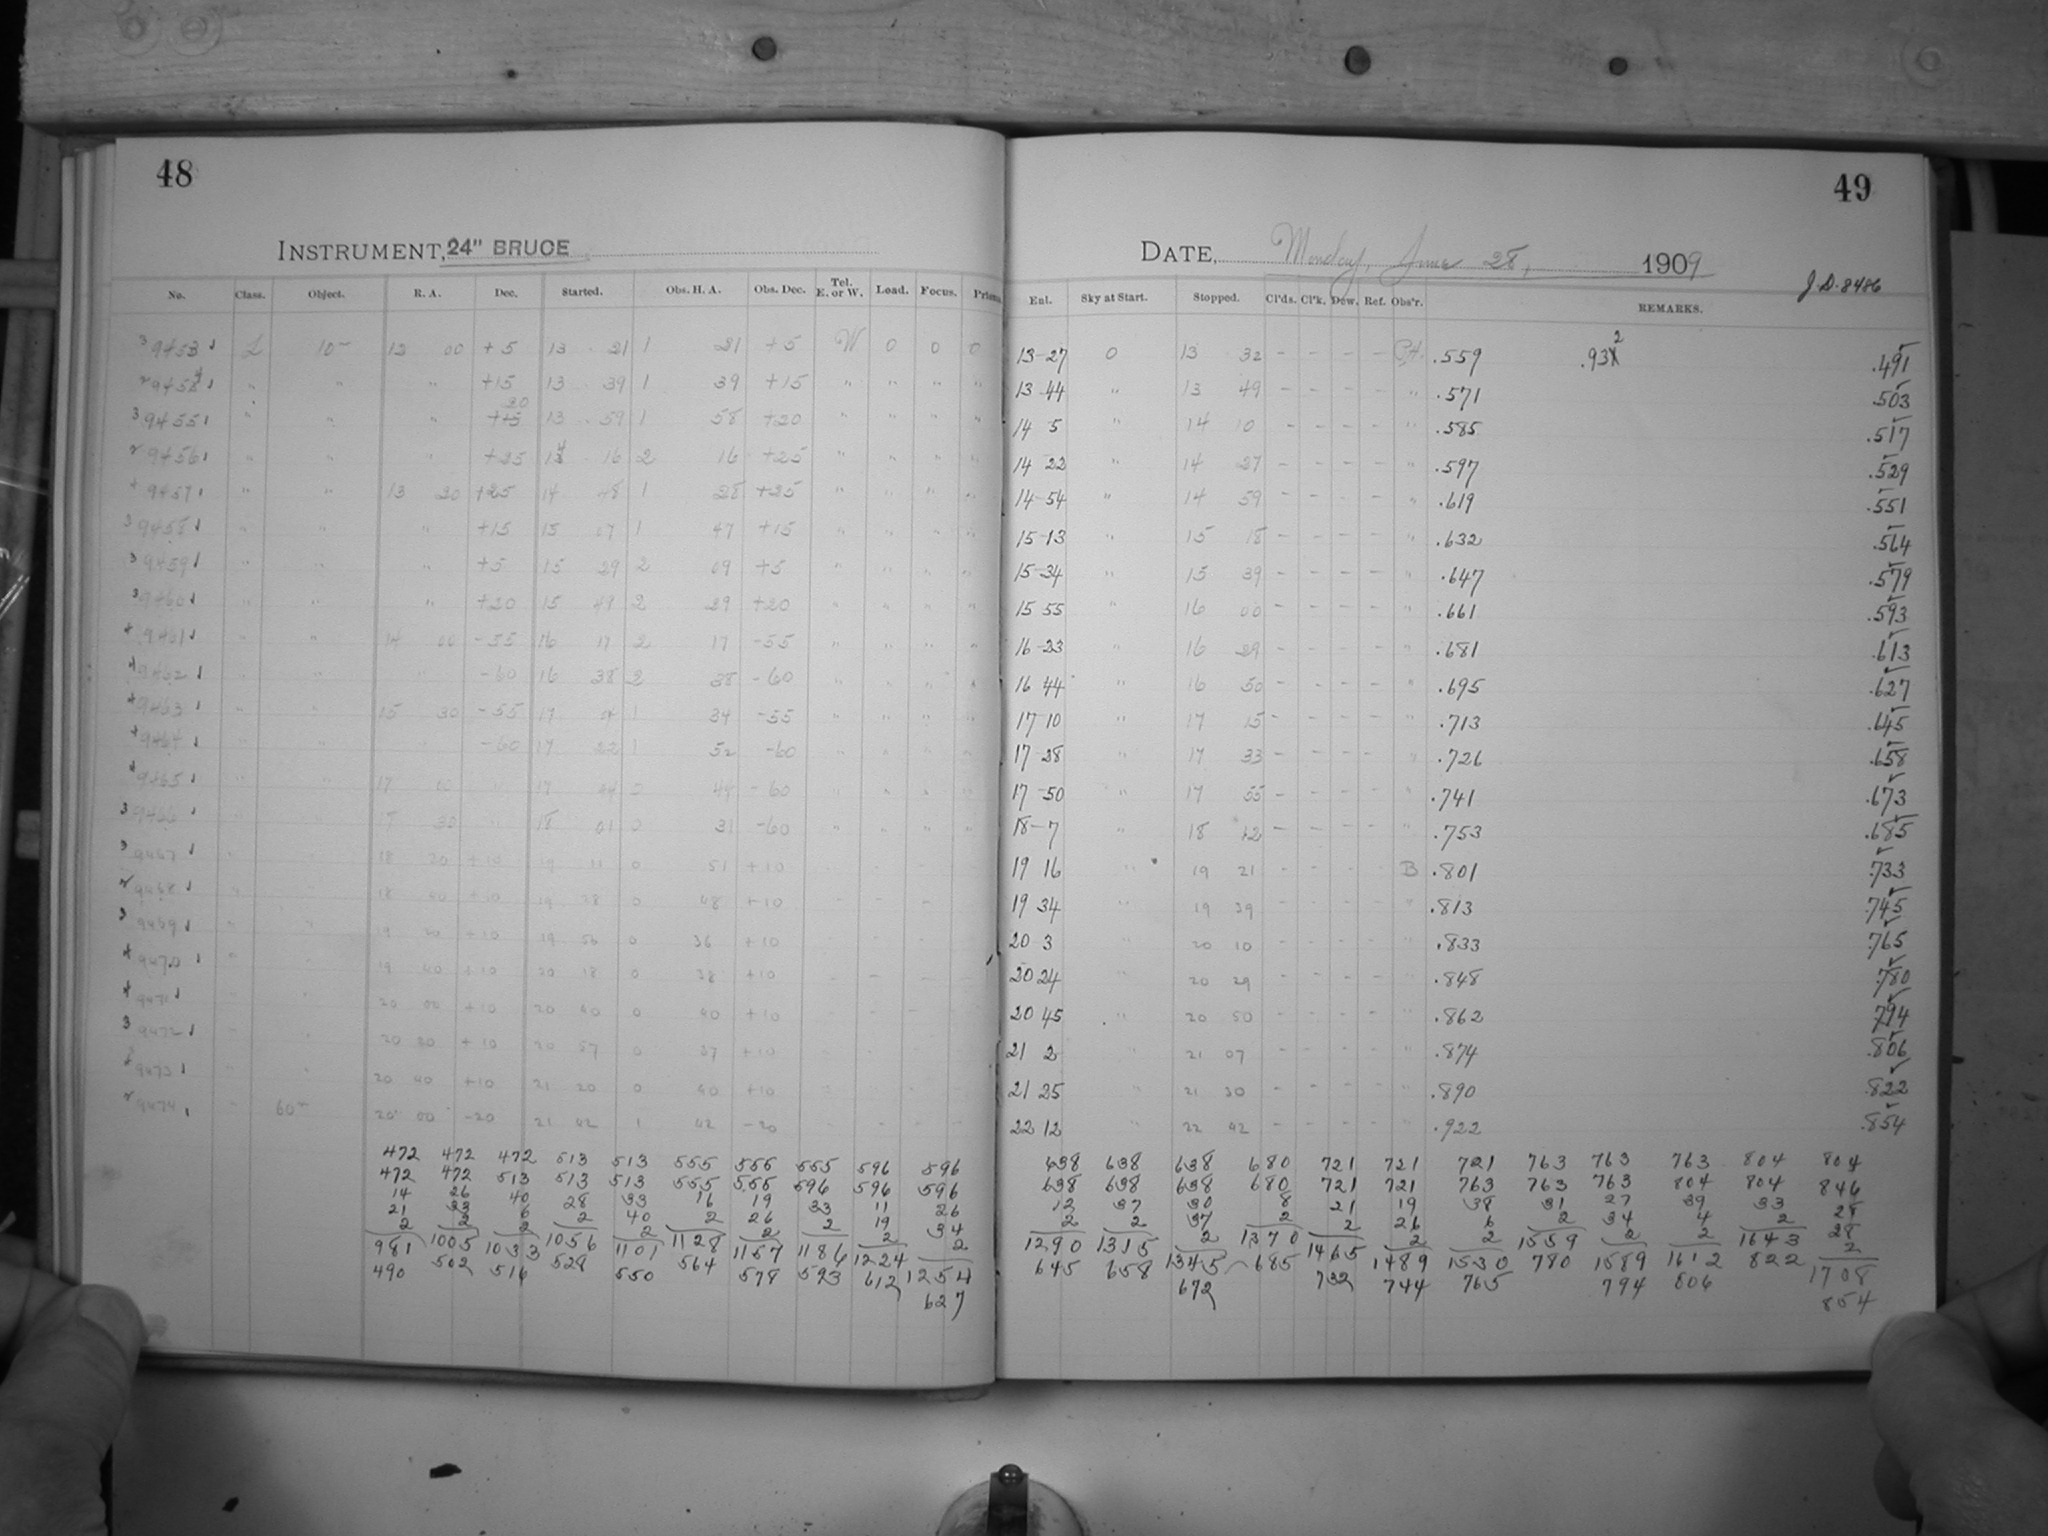 48
INSTRUMENT, 24" BRUCE
No. Class. Object. R. A. Dec. Started. Obs. H. A. Obs. Dec. Tel. E. or W. Load. Focus. Prisms
3 9453 L 10m 12 00 +5 13 21 1 21 +5 W 0 0 0
" " " +15 13 39 1 39 +15 " " " "
3 9455 " " " 13 59 1 58 +20 " " " "
9456 " " " +25 16 2 16 +25 " " " "
9457 " " 13 20 +25 14 48 1 28 +25 " " " "
3 9458 " " " +15 15 07 1 47 +15 " " " "
3 9459 " " " +5 15 29 2 09 +5 " " " "
3 9460 " " " +20 15 49 2 29 +20 " " " "
9461 " " 14 00 -55 16 17 2 17 -55 " " " "
9462 " " " -60 16 38 2 38 -60 " " " "
9463 " " 15 30 -55 17 04 1 34 -55 " " " "
9464 " " " -60 17 22 1 52 -60 " " " "
9465 " " 17 00 " 17 44 0 44 -60 " " " "
3 9466 " " 17 30 " 18 01 0 31 -60 " " " "
3 9467 18 20 +10 19 11 0 51 +10
9468 18 40 +10 19 28 0 48 +10
3 9469 19 20 +10 19 56 0 36 +10
9470 19 40 +10 20 18 0 38 +10
9471 20 00 +10 20 40 0 40 +10
3 9472 20 20 +10 20 57 0 37 +10
9473 20 40 +10 21 20 0 40 +10
9474 60m 20 00 -20 21 42 1 42 -20
472 472 472 513 513 555 555 555 596 596
472 472 513 513 513 555 555 596 596 596
14 26 40 28 33 16 19 33 11 26
21 33 6 2 40 2 26 2 19 34
2 2 2 2 2 2 2
981 1005 1033 1056 1101 1128 1157 1186 1224 1254
490 502 516 528 550 564 578 593 612 627
49
DATE, Monday, June 28, 1909
J.D. 8486
Enl. Sky at Start. Stopped. Cl'ds. Cl'k. Dew. Ref. Obs'r. REMARKS.
13-27 0 13 32 - - - - .559 .932 .491
13 44 " 13 49 - - - - " .571 .503
14 5 " 14 10 - - - - " .585 .517
14 22 " 14 27 - - - - " .597 .529
14-54 " 14 59 - - - - " .619 .551
15-13 " 15 18 - - - - " .632 .564
15-34 " 15 39 - - - - " .647 .579
15 55 " 16 00 - - - - " .661 .593
16-23 " 16 29 - - - - " .681 .613
16 44 " 16 50 - - - - " .695 .627
17 10 " 17 15 - - - - " .713 .645
17-28 " 17 33 - - - - " .726 .658
17-50 " 17 55 - - - - " .741 .673
18-7 " 18 12 - - - - " .753 .685
19 16 " 19 21 - - - - B .801 .733
19 34 " 19 39 - - - - " .813 .745
20 3 " 20 10 - - - - " .833 .765
20 24 " 20 29 - - - - " .848 .780
20 45 " 20 50 - - - - " .862 .794
21 2 " 21 07 - - - - " .874 .806
21 25 " 21 30 - - - - " .890 .822
22 12 " 22 42 - - - - " .922 .854
638 638 638 680 721 721 721 763 763 763 804 804
638 638 638 680 721 721 763 763 763 804 804 846
12 37 30 8 21 19 38 31 27 39 33 28
2 2 37 2 2 26 6 2 34 4 2 28
2 2 2 2 2 2
1290 1315 1345 1370 1465 1489 1530 1559 1589 1612 1643 1708
645 658 672 685 732 744 765 780 794 806 822 854